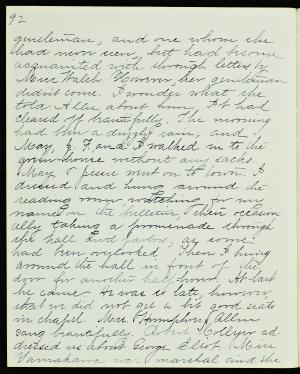 92
gentleman, and one whom she
had never seen, but had become
acquainted with through letters by
Miss Walsh. Hmmm, her gentleman
didn't come. I wonder what she
told Allen about him. It had
cleared off beautifully. The morning
had been a drizzly rain, and
May, E. F. and I walked in to the
green-house without any sacks.
May & Jessie went on to town. I
dressed and hung around the
reading room, watching for my
name on the bulletin, then occasion-
ally taking a promenade through
the hall and parlor, as some
had been overlooked. Then I hung
around the hall in front of the
door for another half hour. At last
he came. He was so late, however,
that we did not get in good seats
in chapel. Mrs. Humphrey Allen
sang beautifully. Robert Collyer ad
dressed us about George Eliot. Miss
Yamakawa was marshal and she